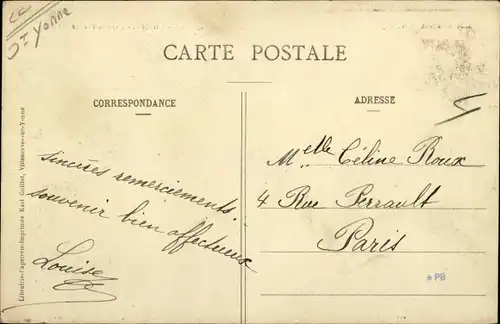 St Yonne
CARTE POSTALE
CORRESPONDANCE
ADRESSE
sincères remerciements.
souvenir bien affectueux
Louise
Melle Céline Roux
4 Rue Perrault
Paris
*PB
Librairie-Papeterie-Imprimerie Karl Guillot, Villeneuve-sur-Yonne